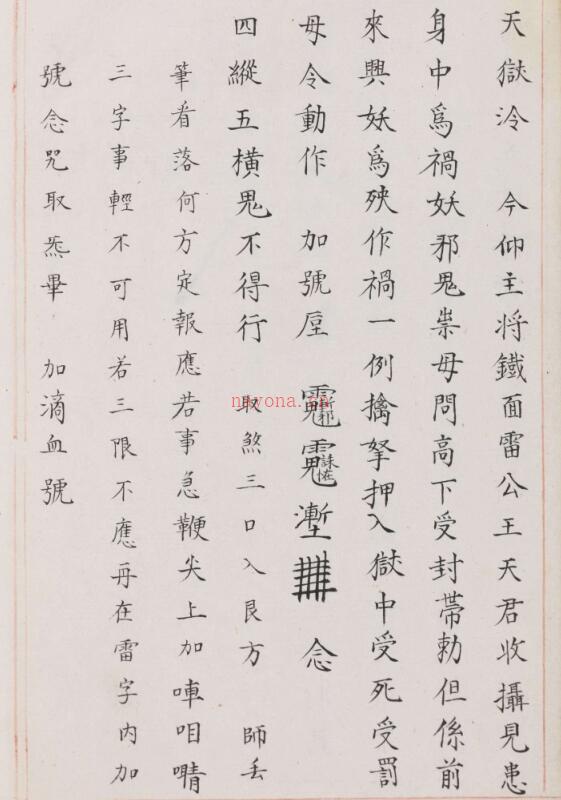 天獄泠　今仰主將鐵面雷公王天君收攝見患
身中爲禍妖邪鬼祟毋問高下受封帶勅但係前
來興妖爲殃作禍一例擒拏押入獄中受死受罰
毋令動作　加號　念
四縱五橫鬼不得行　取煞三口入艮方　師丟
筆看落何方定報應若事急鞭尖上加唓咱㗌
三字事輕不可用若三限不應再在雷字内加
號念咒取炁畢　加滴血號
nayona.cn